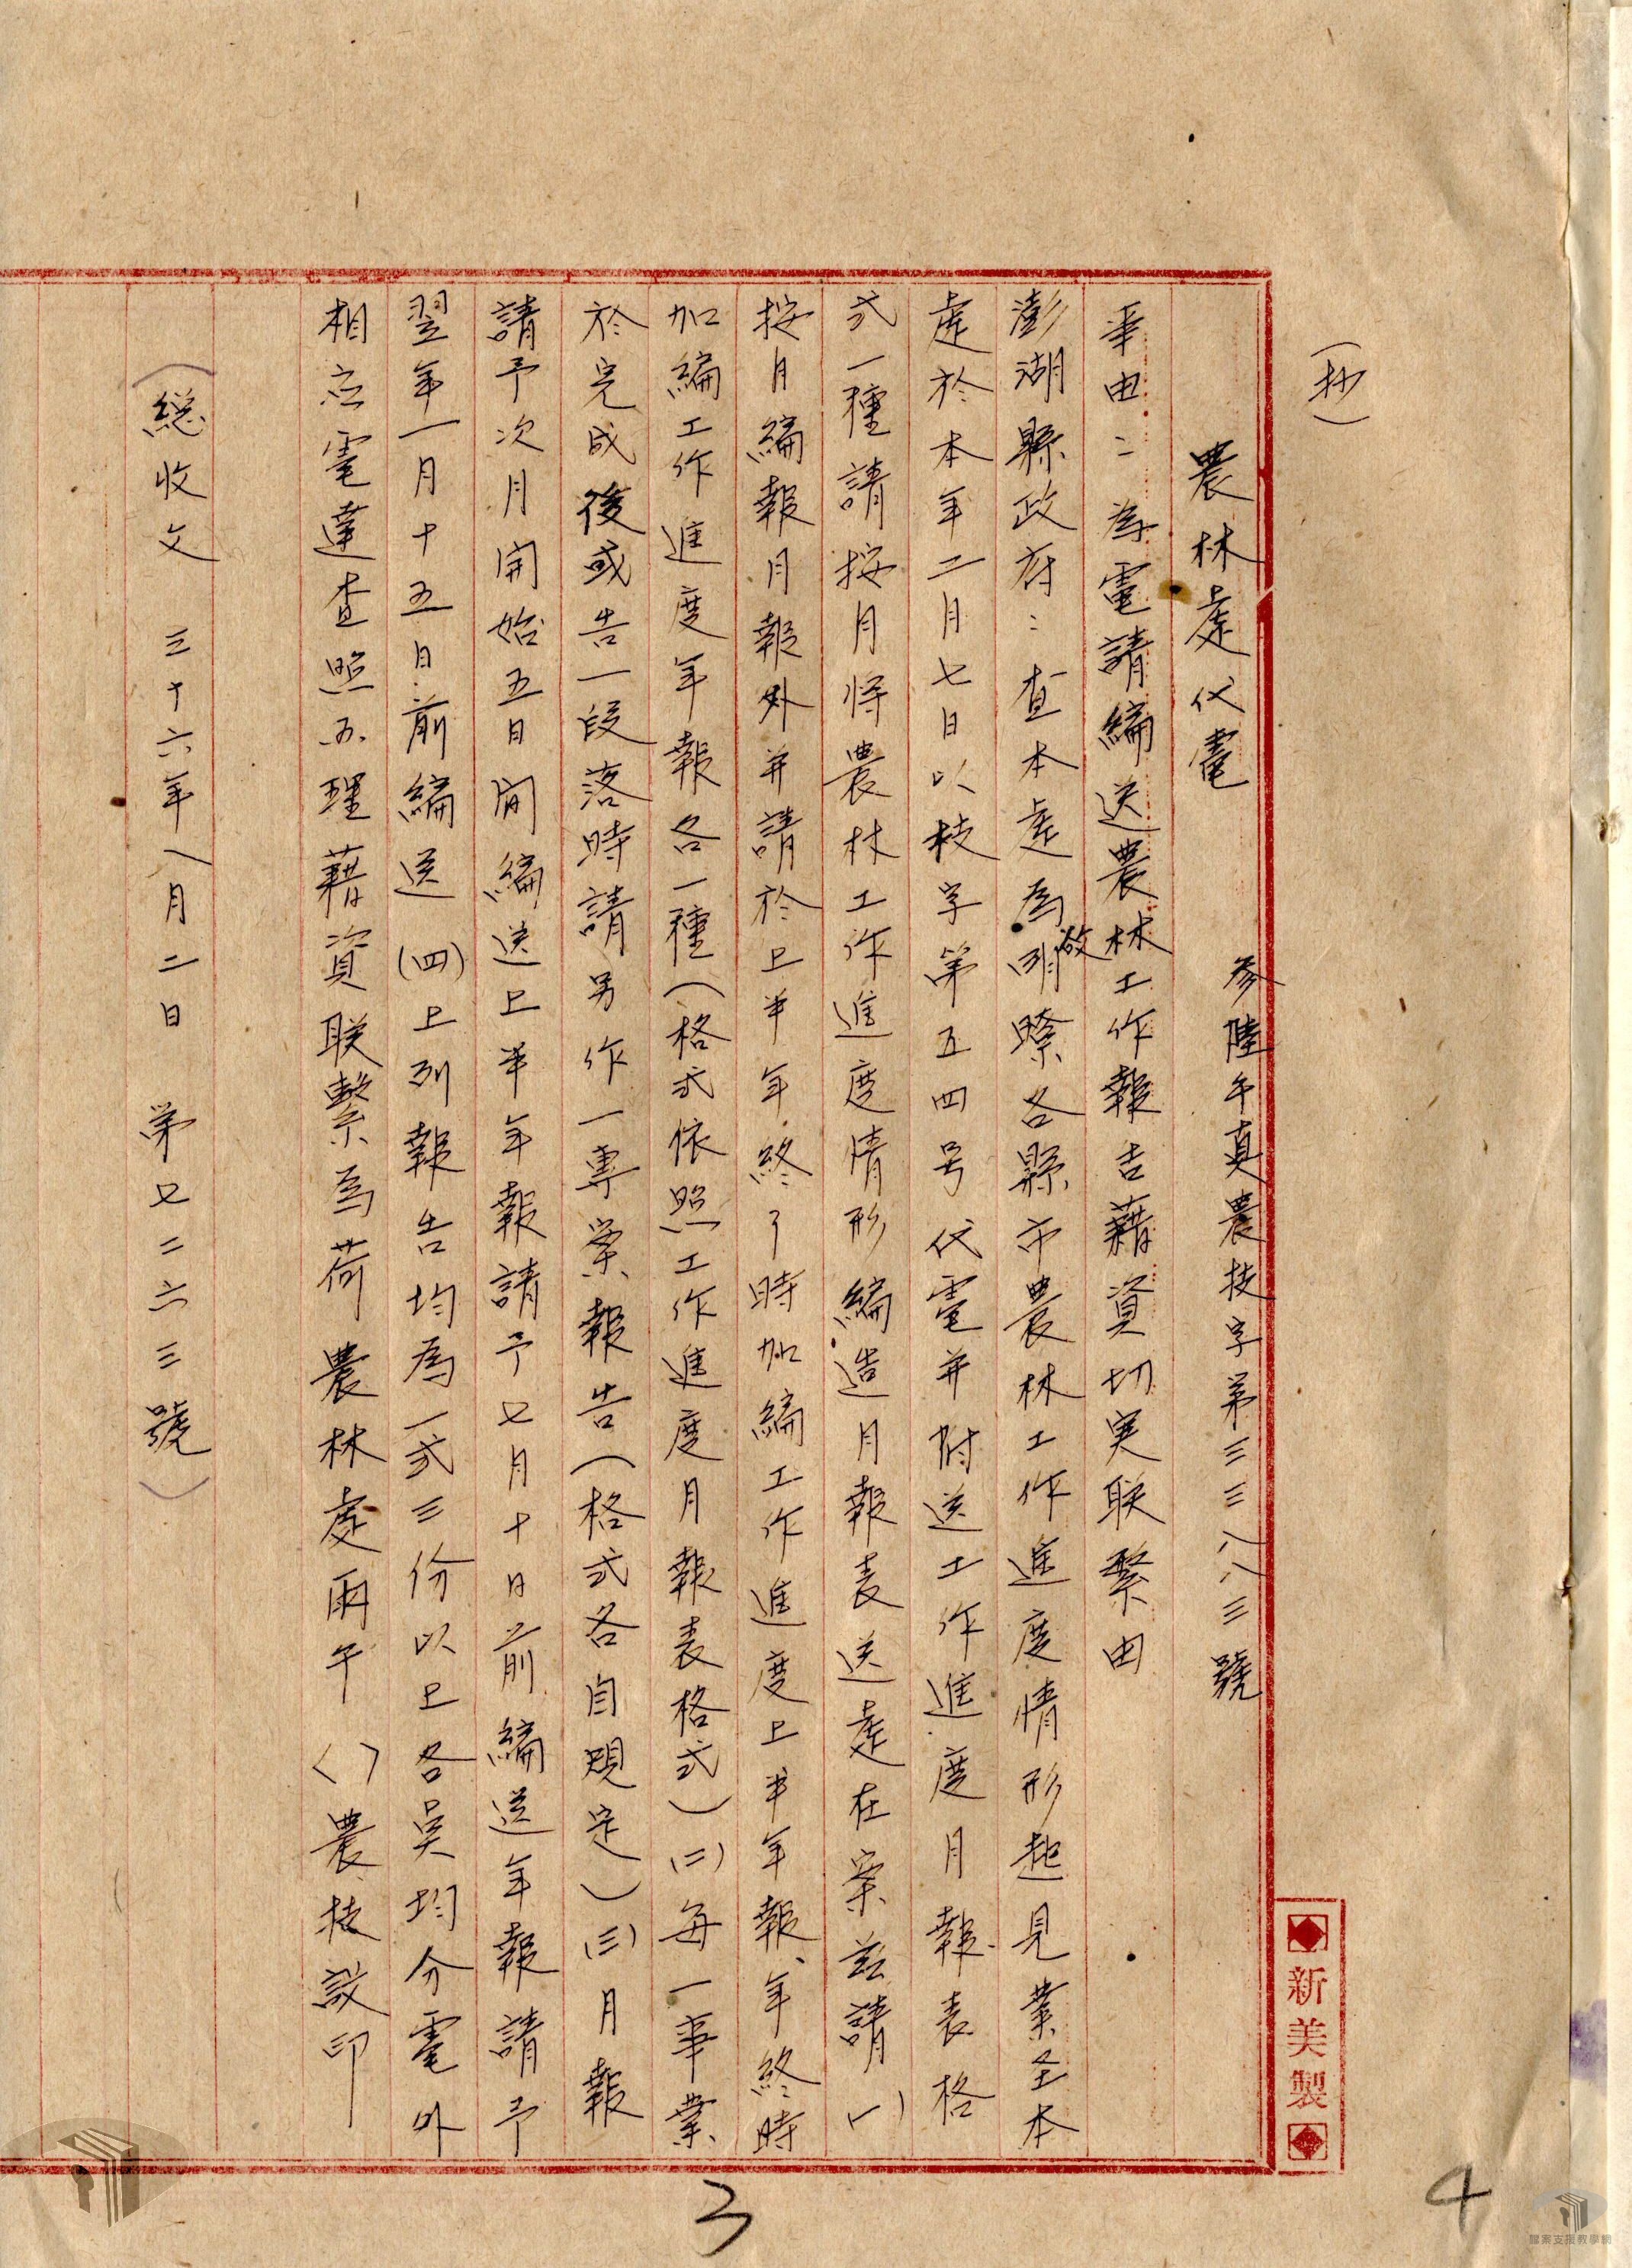 (抄)
農林處代電 参陸午真農技字第三三八八三號
事由：為電請編送農林工作報告藉資切实联繫由
澎湖縣政府：查本處為啟明瞭各縣市農林工作進度情形起見業至本
處於本年二月七日以技字第五四号代電并附送工作進度月報表格
式一種請按月將農林工作進度情形編造月報表送處在案茲請(一)
按月編報月報外并請於上半年終了時加編工作進度上半年報、年終時
加編工作進度年報各一種(格式依照工作進度月報表格式)(二)每一事業
於完成後或告一段落時請另作一專案報告(格式各自規定)(三)月報
請予次月開始五日間編送上半年報請予七月十日前編送年報請予
翌年一月十五日前編送(四)上列報告均為一式三份以上各吴均分電外
相应電達查照办理藉資联繫為荷 農林處雨午〈〉農技設印
(總收文 三十六年八月二日 第七二六三號)
新美製
3
4
檔案支援教學網